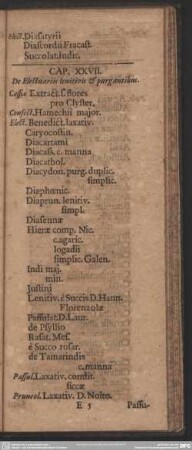 Elect. Diasatyrii
Diascordii Fracast.
Succolat. Indic.
CAP. XXVII.
De Electuariis lenitivis & purgantibus.
Cassiæ Extract. s. flores
pro Clyster.
Confect. Hamechi major.
Elect. Benedict. laxativ.
Caryocostin.
Diacartami
Diacass. c. manna
Diacathol.
Diacydon. purg. duplic.
simplic.
Diaphœnic.
Diaprun. lenitiv.
simpl.
Diasennæ
Hieræ comp. Nic.
c. agaric.
logadii
simplic. Galen.
Indi maj.
min.
Justini
Lenitiv. é Succis D. Hann.
Florenzolæ
Passulat. D. Laur.
de Psyllio
Rosat. Mes.
é Succo rosar.
de Tamarindis
c. manna
Passul. Laxativ. condit.
siccæ
Pruneol. Laxativ. D. Nostr.
E 5 Passu-